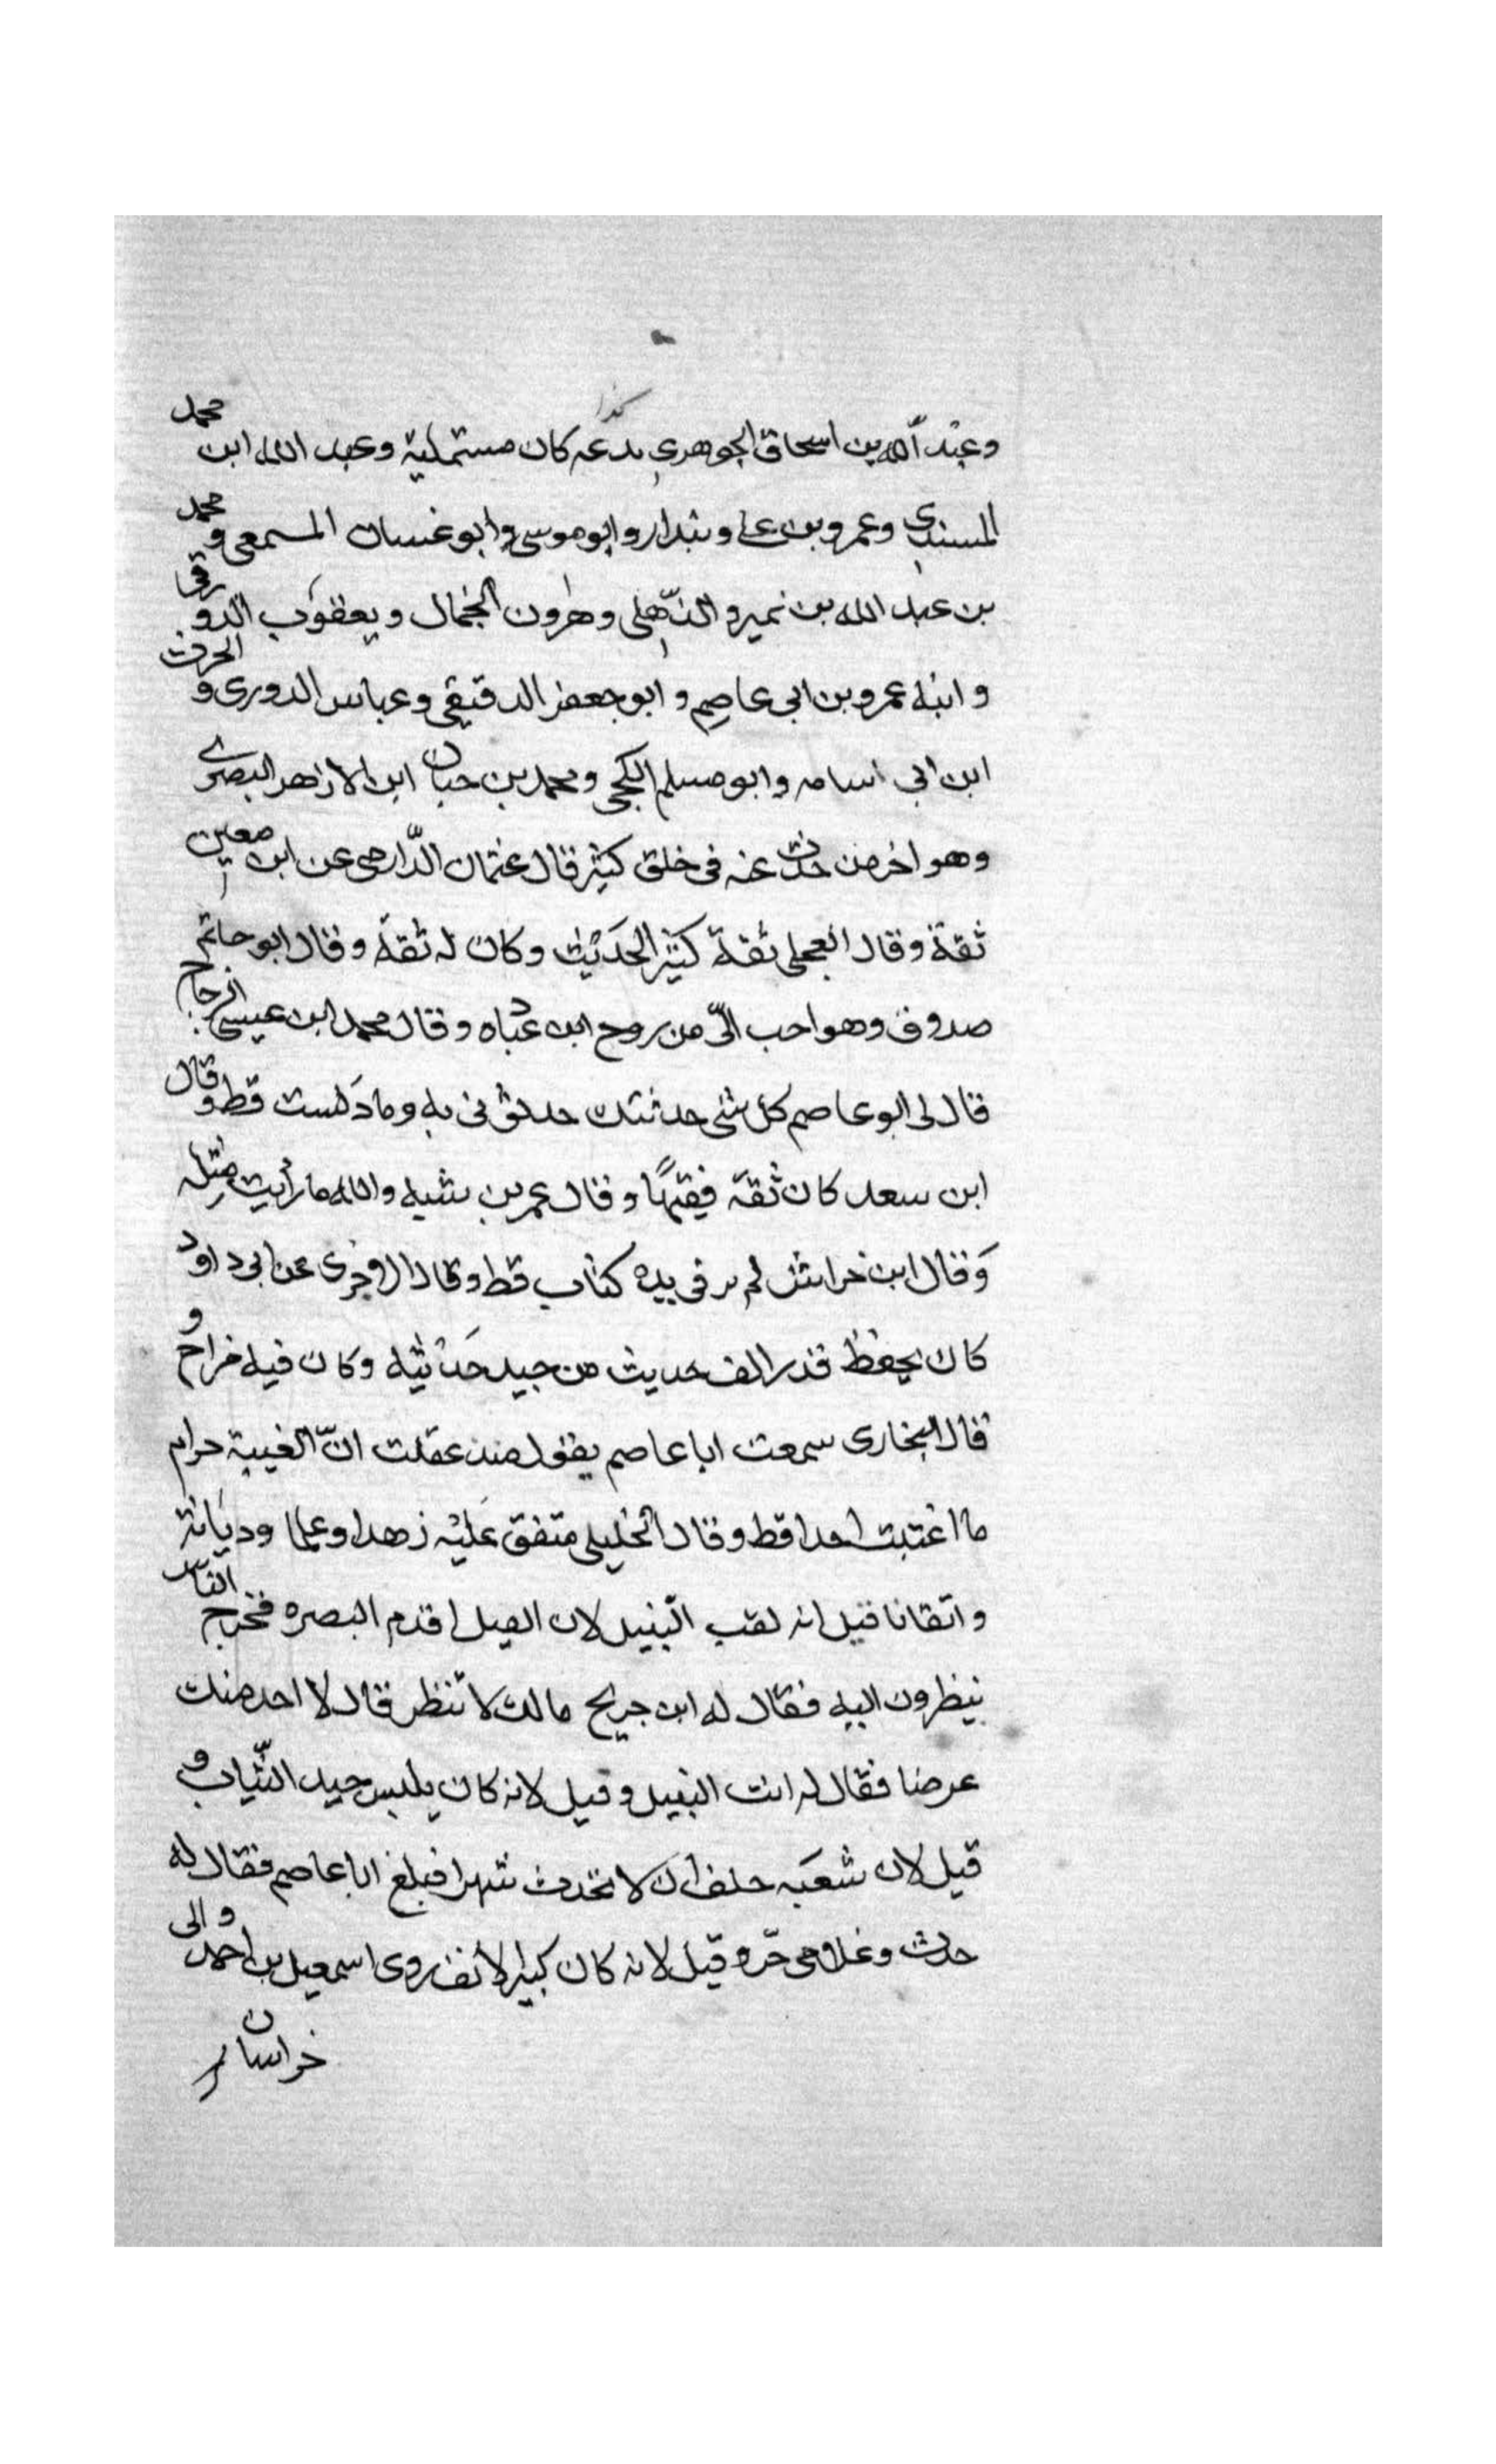 وعبْد الله بن اسحاق الجوهرى بدعه كذا كان مستملية وعبد الله ابن محمد
المسندى وعمرو بن على وبندار وابو موسى وابو غسان المسمعى و محمد
بن عبد الله بن نمير و الذّهلى وهرون الخجمال ويعقوب الدو رقى
و ابنه عمرو بن ابى عاصم و ابو جعفر الدقيقى وعباس الدورى و الحرث
ابن ابى اسامه وابو مسلم الكجى ومحمد بن حبان ابن الازهر البصرى
وهو اخر من حدث عنه فى خلق كثير قال عثمان الدّارمى عن ابن معين
ثقة وقال العجلى ثقة كثير الحَديث وكان له ثقة وقال ابو حاتم
صدوق وهو احب الىّ من روح ابن عباده وقال محمد ابن عيسى الزجاج
قال لى ابو عاصم كل شى حدثتك حدثونى به وما دَلست قط و قال
ابن سعد كان ثقة فقيهًا وقال عمر بن شبه والله ما رأيت مثله
وَقال ابن خراش لم ير فى يده كتاب قط وقال الاجرى عن ابى داود
كان يحفظ قدر الف حديث من جيد حَديثه وكان فيه مزاح و
قال البخارى سمعت ابا عاصم يقول منذ عقلت انّ الغيبة حرام
ما اغتبت احدا قط وقال الخليلى متفق عَليْه زهدا وعلما وديَانة
و اتقانا قيل انه لقب النّبيل لان الفيل اقدم البصره فخرج النّاس
ينظرون اليه فقال له ابن جريج مالك لا تنظر قال لا احد منك
عرضا فقال له انت النبيل وقيل لانه كان يلبس جيد الثّياب و
قيل لان شعبَه حلف ان لا تحدث شهرا فبلغ ابا عاصم فقال له
حدث وغلامى حّر و قيل لانه كان كبير الأنف روى اسمعيل بن احمد و الى
خراسان